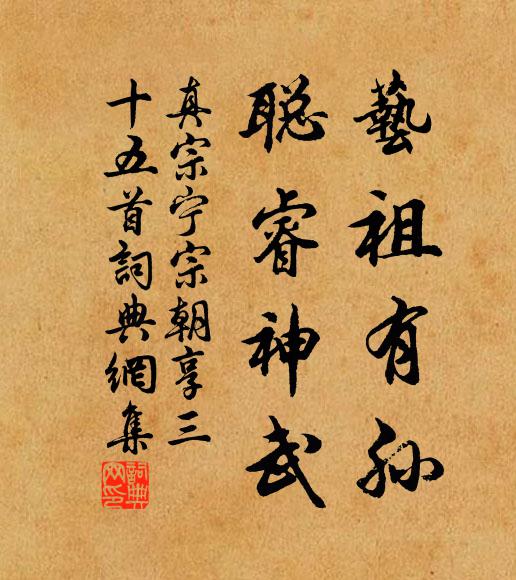 藝祖有孙
聪睿神武
真宗宁宗朝享三
十五首詞典網集
詞典网印